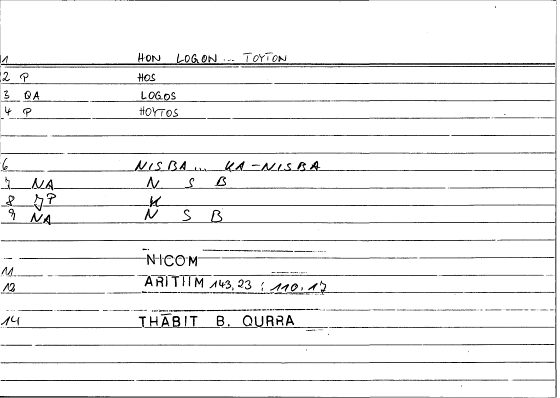 1 HON LOGON ... TOYTON
2 P HOS
3 QA LOGOS
4 P HOYTOS
6 NISBA ... KA-NISBA
7 NA N S B
8 JP K
9 NA N S B
NICOM
11
13 ARITIIM 143,23 ; 110,17
14 THĀBIT B. QURRA